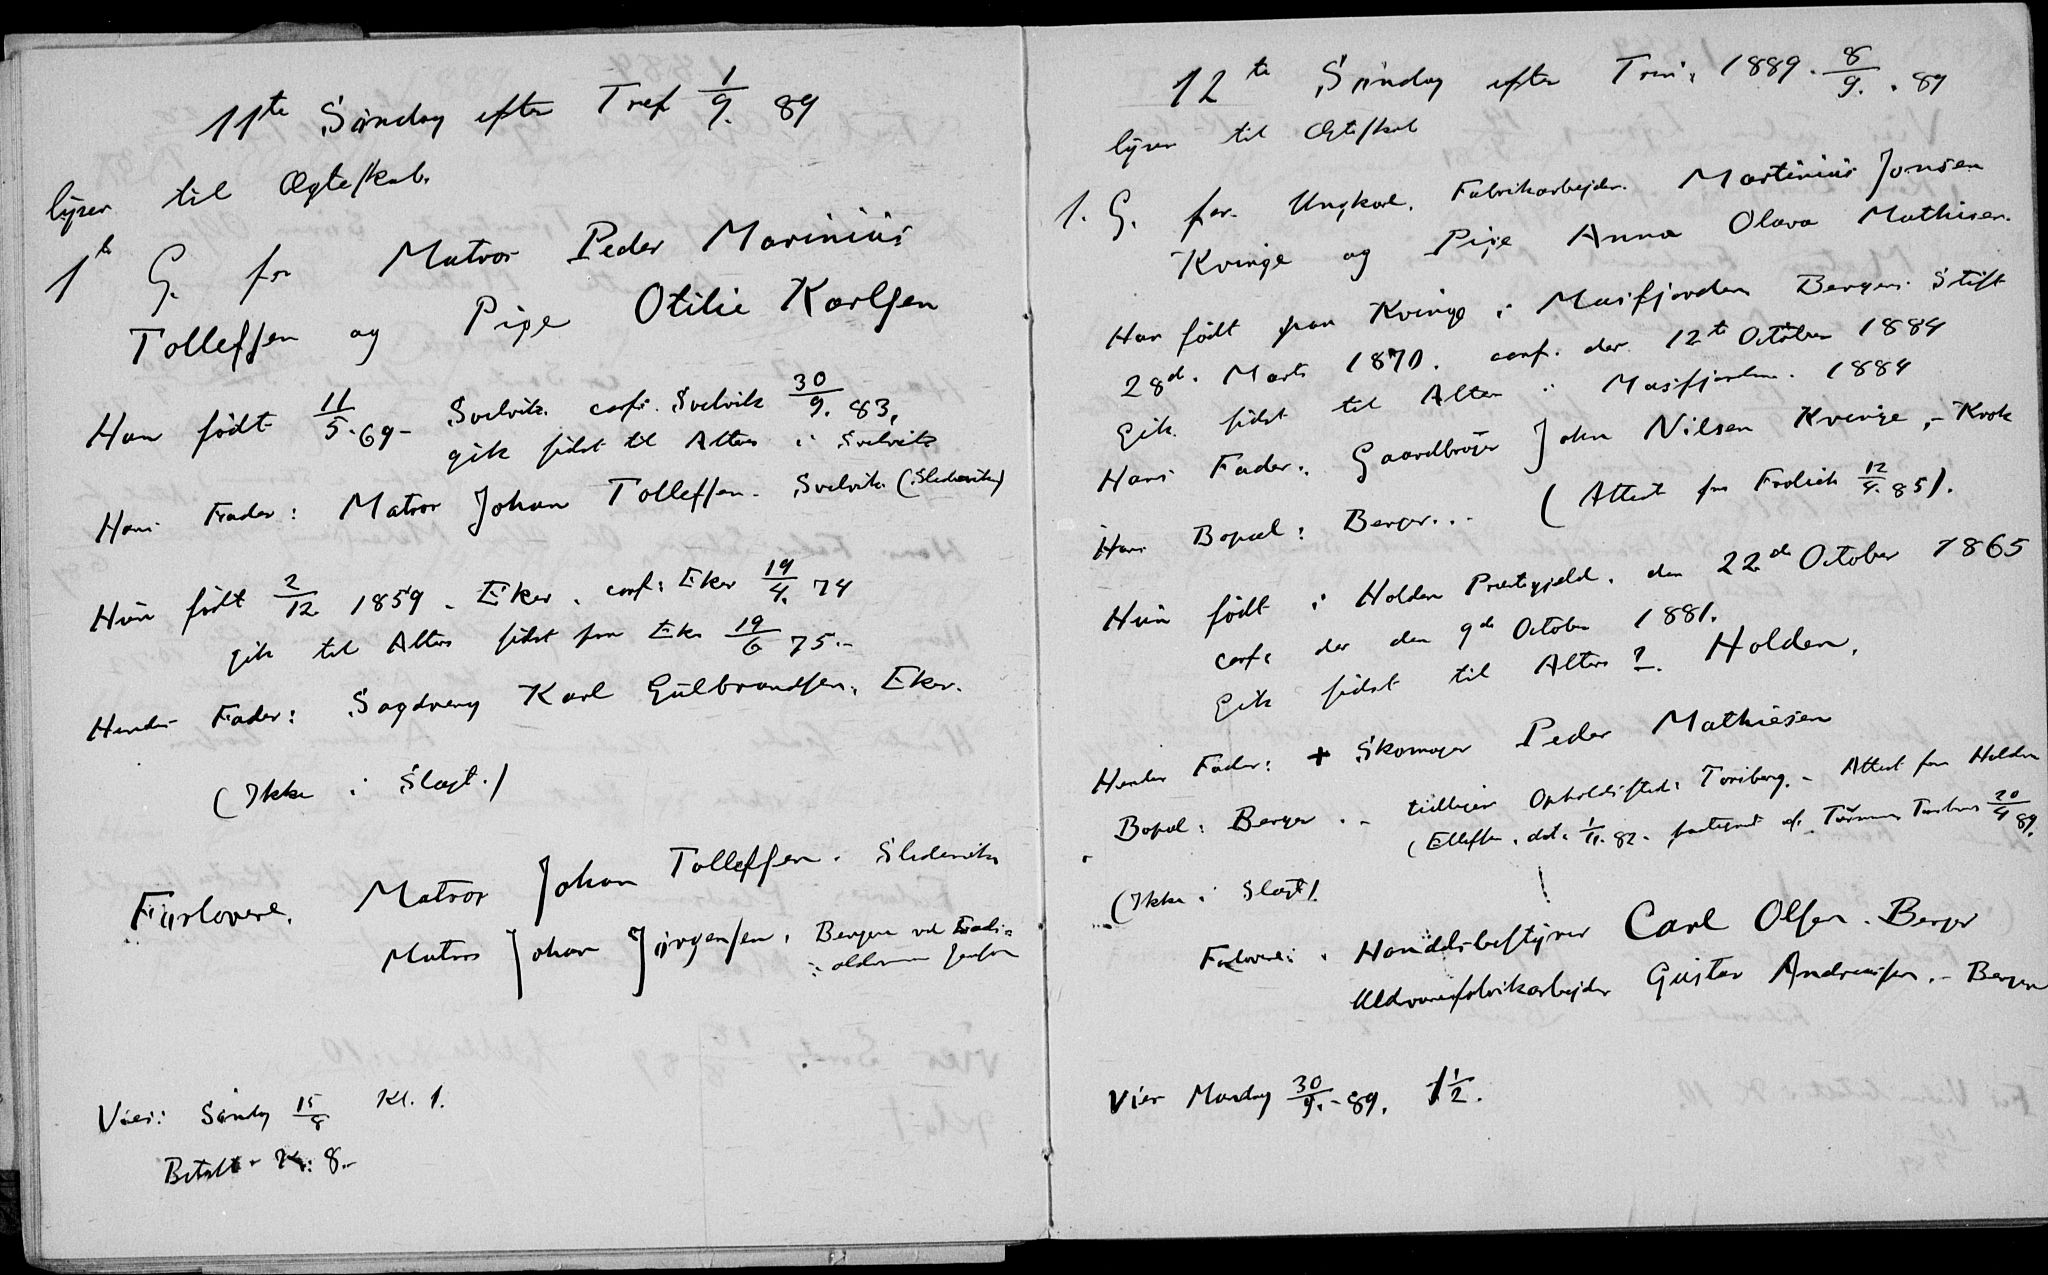 11te Søndag efter Tref 1/9. 89
lyses til Ægteskab.
1te G. for Matros Peder Marinius
Tollefsen og Pige Otilie Karlsen
Han født 11/5.69 - Svelvik. conf. Svelvik 30/9. 83,
gik sidst til Alters i Svelvik
Hans Fader: Matros Johan Tollefsen. Svelvik
Hun født 2/12 1859. Eker. conf: Eker 19/4. 74
gik til Alters sidst fra Eker 19/6 75.-
Hendes Fader: Sagdreng Karl Gulbrandsen. Eker.
(Ikke i Slægt.)
Forlovere. Matros Johan Tollefsen.
Matros Johan Jørgensen, Bergen ved
oldermand Jensen
Vies: Søndag 15/8 Kl. 1.
Betalt Kr: 8.-
12te Søndag efter Trin: 1889. 8/9. 89
lyses til Ægteskab
1. G. for Ungkarl. Fabrikarbejder. Martinius Jonsen
Kvinge og Pige Anna Olava Mathisen.
Han født paa Kvinge i Masfjorden Bergens Stift
28d. Marts 1870. conf. der 12te October 1884
Gik sidst til Alters i Masfjorden. 1884
Hans Fader: Gaardbruger John Nilsen Kvinge,
Hans Bopæl: Berger... (Attest fra 12/4. 85).
Hun født i Holden Præstegjeld. den 22de October 1865
conf: der den 9de October 1881.
Gik sidst til Alters ? Holden.
Hendes Fader: + Skomager Peder Mathiesen
Bopæl: Berger.- tidligere Opholdssted: - Attest fra Holden
dat. 1/11. 82. 20/4 89.
(Ikke i Slægt)
Forlovere: Handelsbestyrer Carl Olsen. Berger
Uldvarefabrikarbejder Gustav Andreassen.- Berger
Vies Mandag 30/9.-89. 1 1/2.